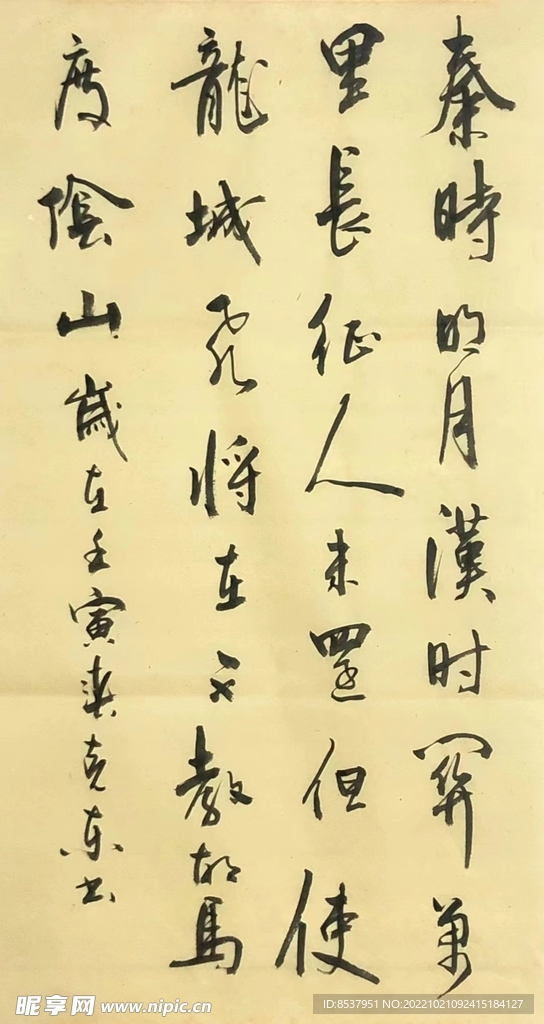 秦時明月漢时関萬
里長征人未還但使
龍城飛将在不教胡馬
度陰山歲在壬寅克东书
昵享网 www.nipic.cn
ID:8537951 NO:20221021092415184127